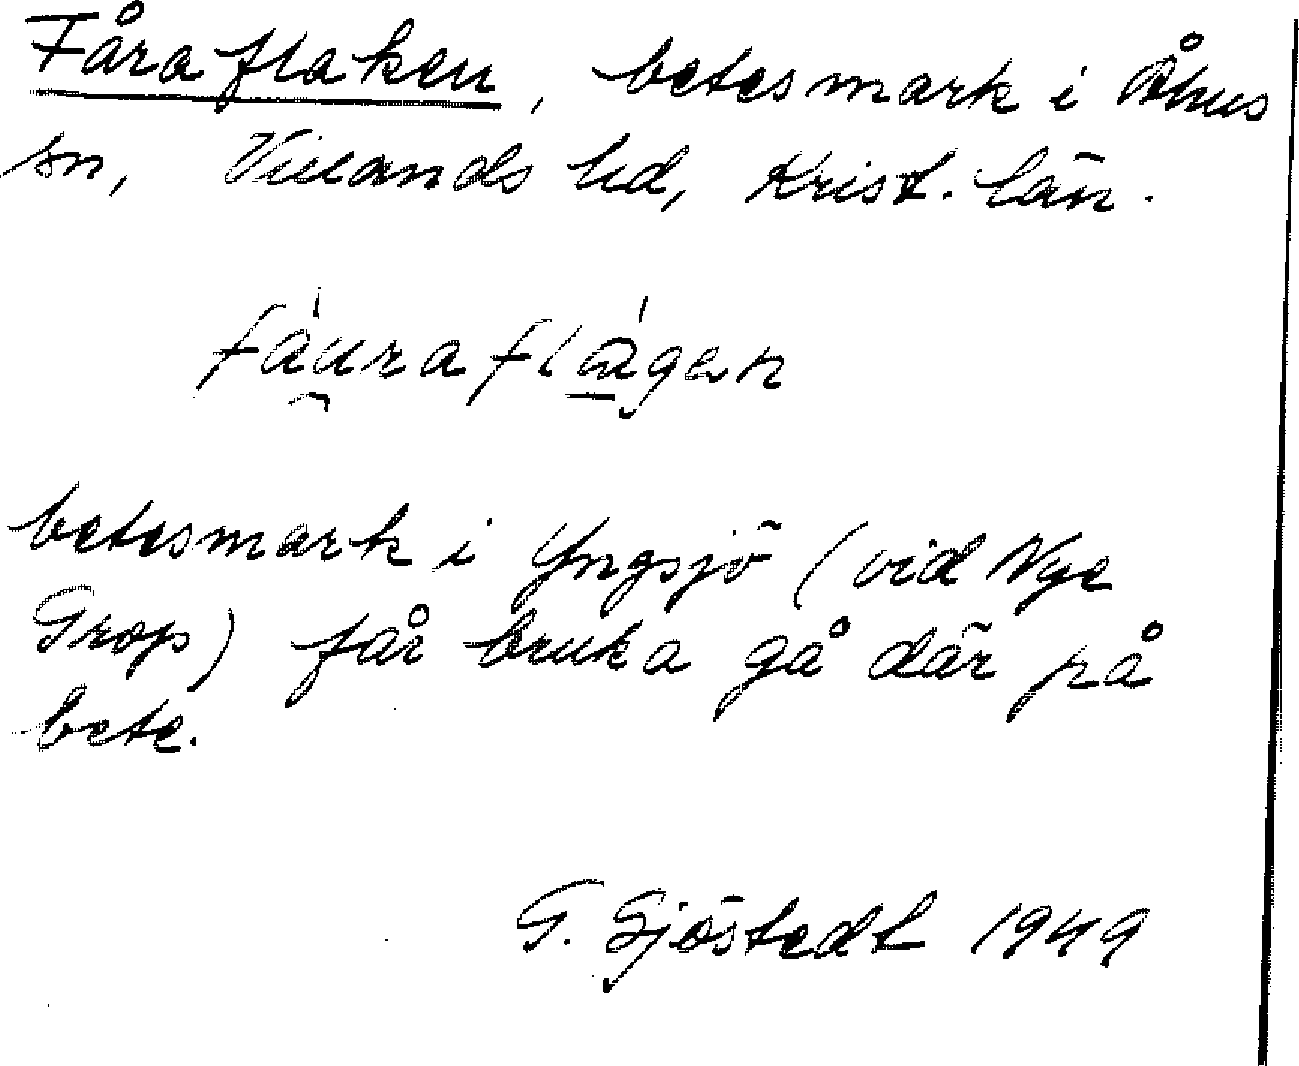 Fåraflaken, betesmark i Åhus
sn, Villands hd, Krist. län.
fáu̯raflá̱gen
betesmark i Yngsjö (vid Nye
Grop) får bruka gå där på
bete.
G. Sjöstedt 1949